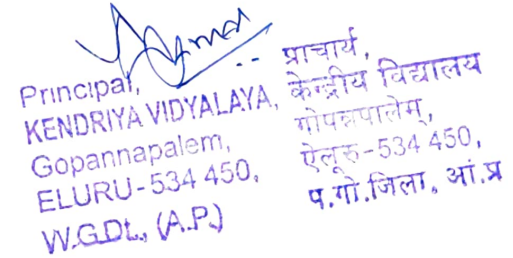 Principal,
KENDRIYA VIDYALAYA,
Gopannapalem,
ELURU-534 450,
W.G.Dt., (A.P.)
प्राचार्य,
केन्द्रीय विद्यालय
गोपन्नपालेम,
ऐलूरु-534 450,
प.गो.जिला, आं.प्र